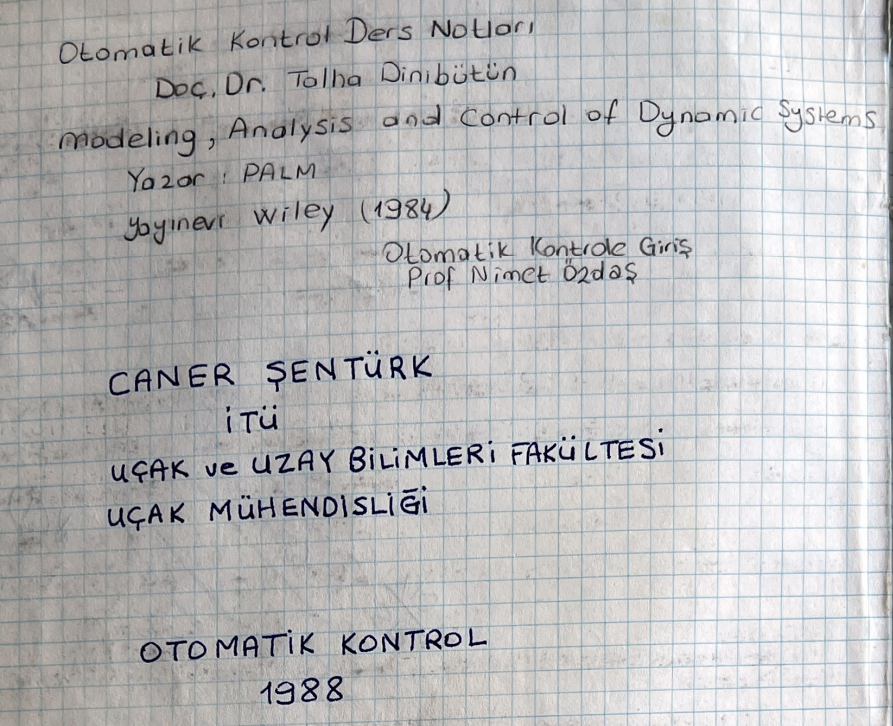 Otomatik Kontrol Ders Notları
Doç. Dr. Talha Dinibütün
Modeling, Analysis and Control of Dynamic Systems
Yazar : PALM
Yayınevi Wiley (1984)
Otomatik Kontrole Giriş
Prof Nimet Özdaş
CANER ŞENTÜRK
İTÜ
UÇAK ve UZAY BİLİMLERİ FAKÜLTESİ
UÇAK MÜHENDİSLİĞİ
OTOMATİK KONTROL
1988